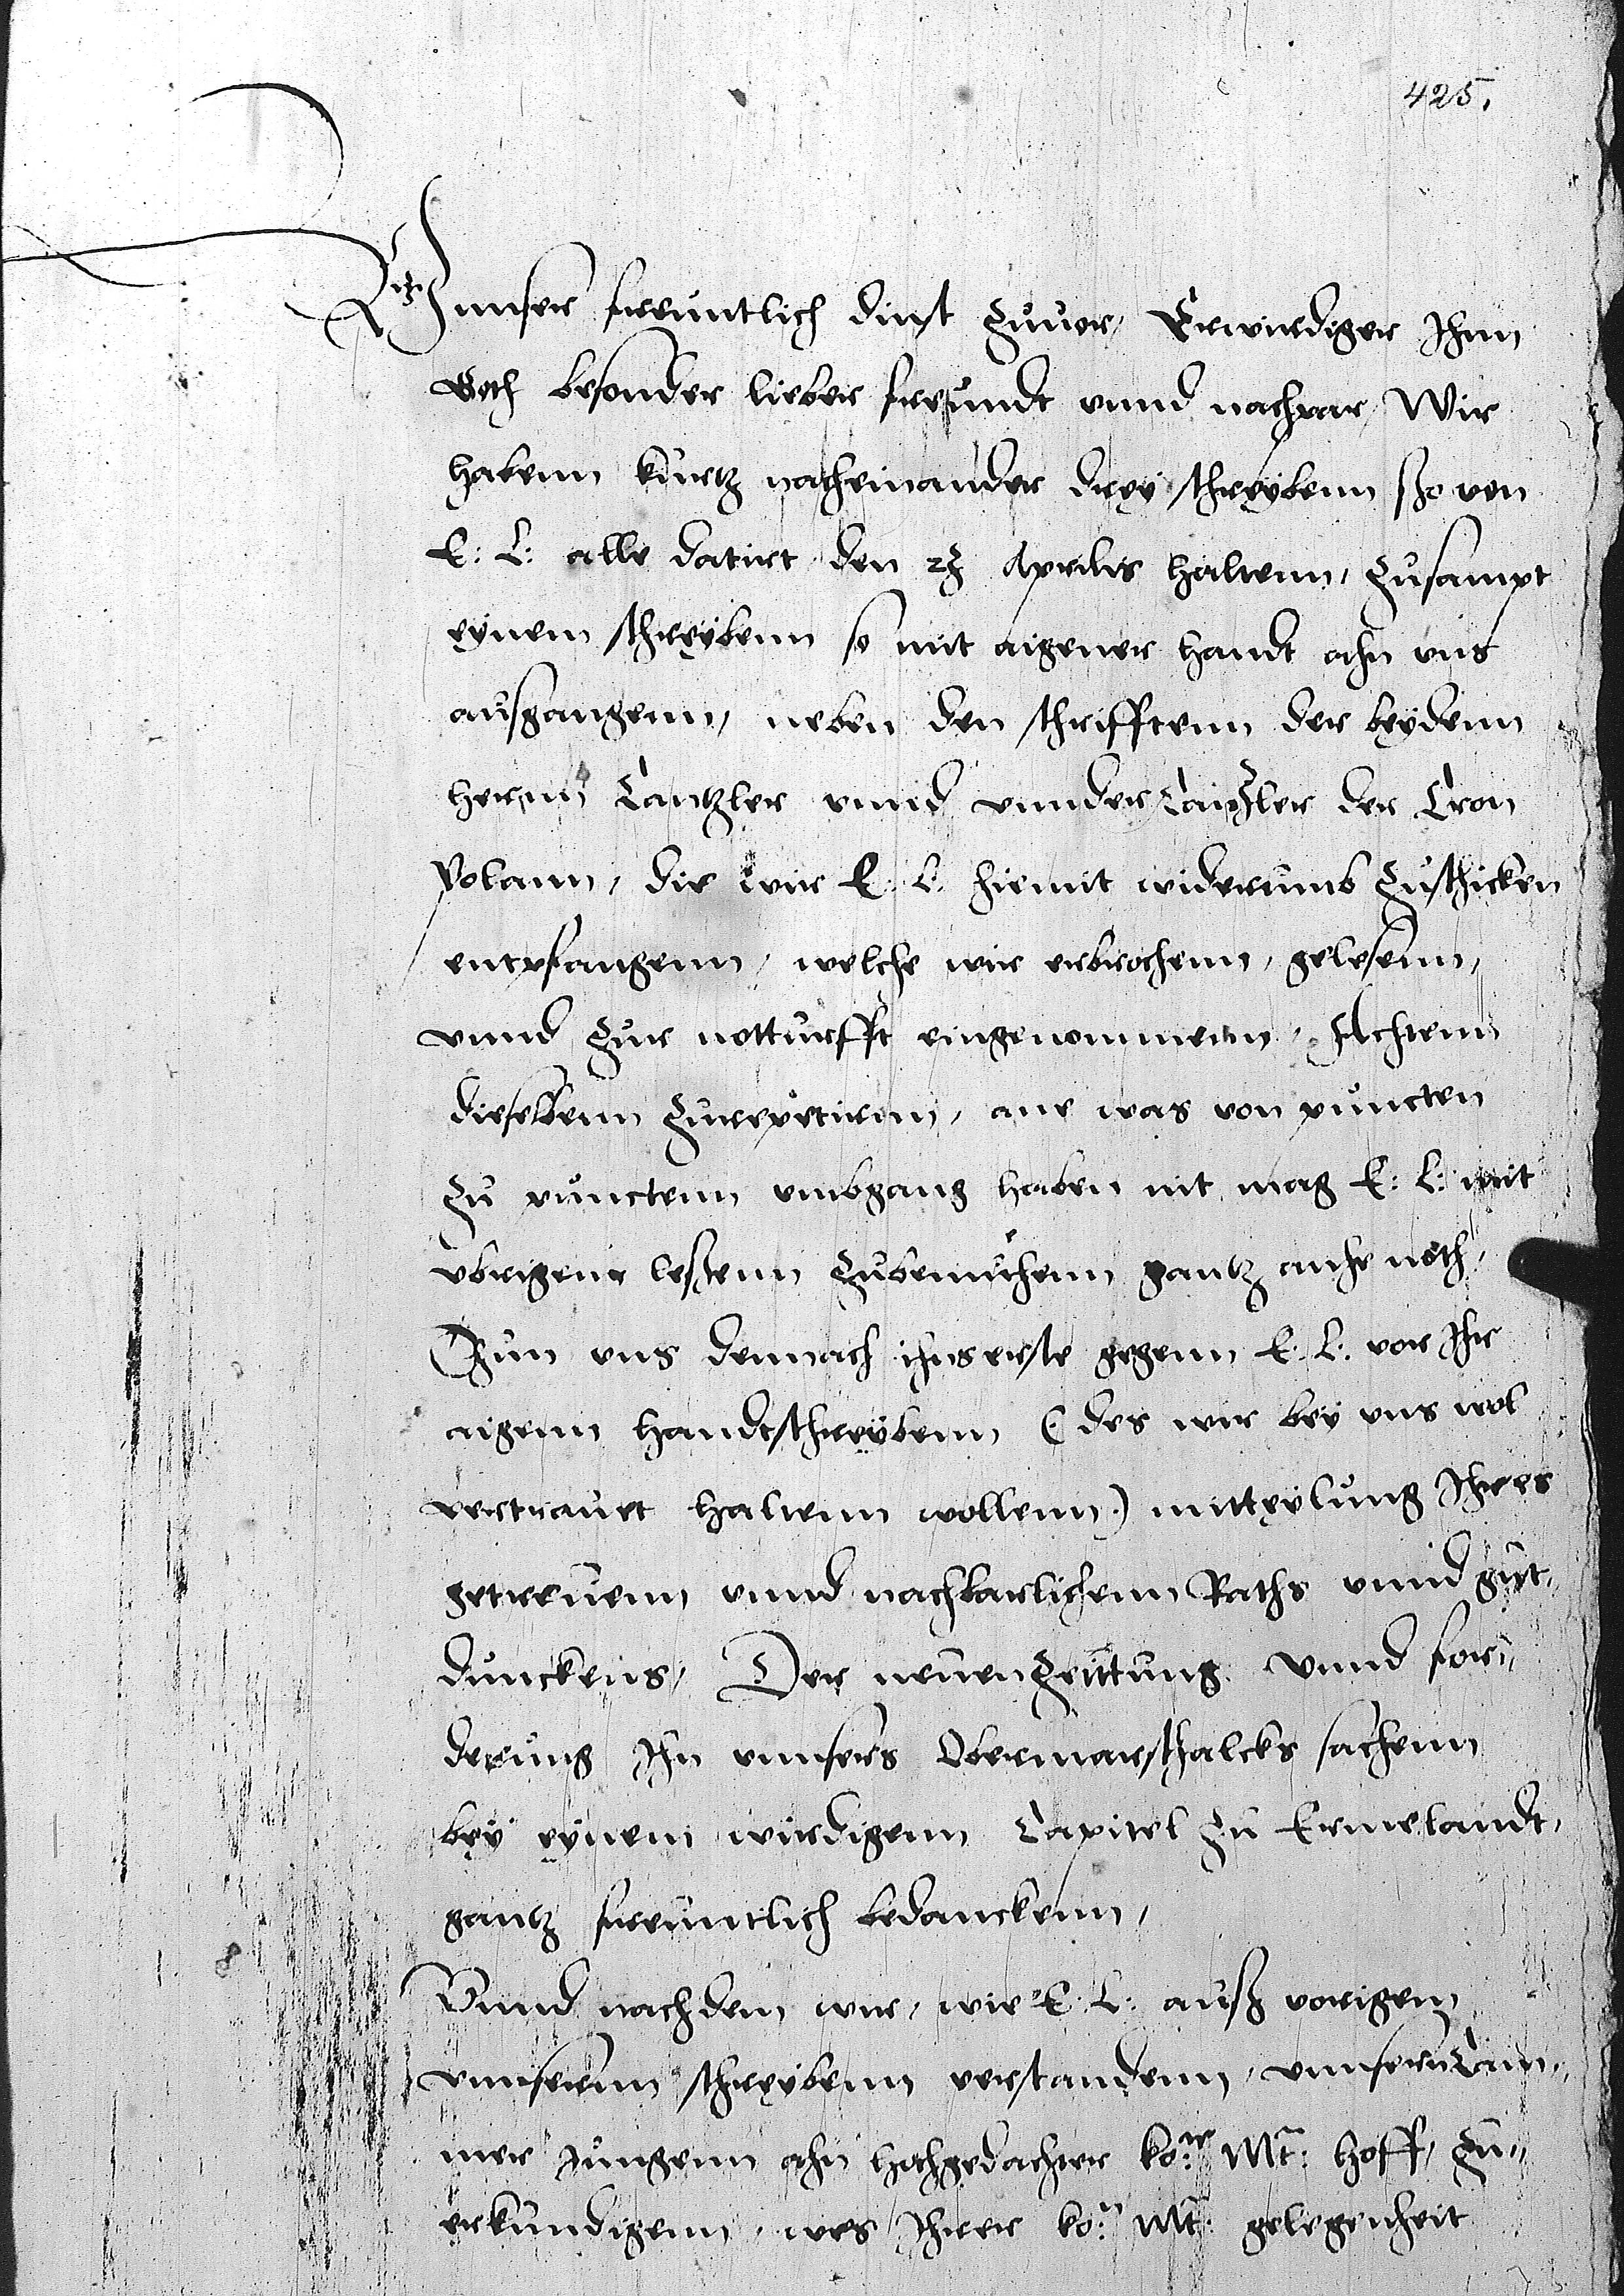 425.
unser freuntlich dinst zuuor, Erwirdiger Jhnn
Goth besonder lieber freundt vnnd nachpar, Wir
habenn kurtz nacheinander drey schreybenn sso von
E: L: alle datirt den Aprilis haltenn, zusampt
eynem schreybenn so mit aigener handt ahn vns
ausgangenn, neben den schrifftenn der beydenn
hernn Cantzler vnnd vnnderCantzler der Cron
Polann, die wir E: L: hiemit widerumb zuschicken
entpfangenn, welche wir erbrochenn, gelesenn,
vnnd zur notturfft eingenommenn, Achtenn
dieselbenn zurepetirenn, ane was von puncten
zu punctenn vmbgang haben nit mag E: L: mit
vbrigenn lesenn zubemuhenn gantz anhe noth,
Thun vns demnach ihns erste gegenn E: L: vor Jhr
aigenn handtschreybenn (: des wir bey vns wol
vertrauet haltenn wollenn:) mitteylung Jhres
getreuenn vnnd nachbarlichenn Raths vnnd gut-
dunckens, Der neuen Zeittung vnnd for-
derung Jhn vnnsers Obermarschalcks sachenn
bey eynem wirdigenn Capitel zu Ermelandt,
gantz freuntlich bedanckenn,
Vnnd nachdem wir, wie E: L: ausz vorigem
vnnserm schreybenn verstandenn, vnnsern Cam-
mer Jungenn ahn hochgedachter ko:r Mt: hoff, zu-
erkundigenn, wes Jhrer ko:n Mt: gelegenheit